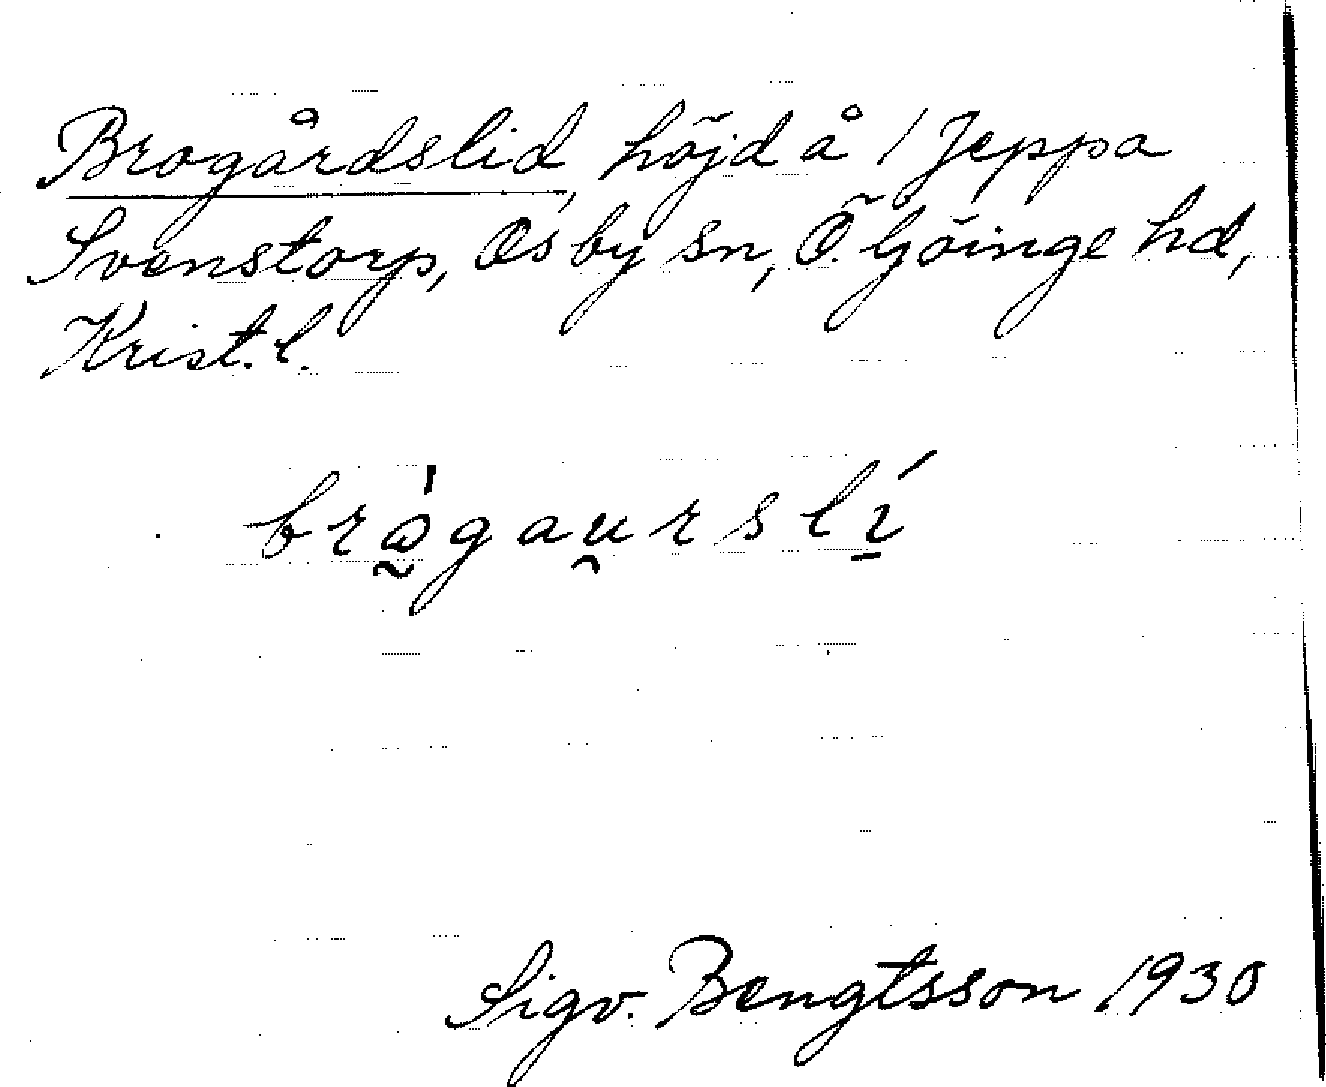 Brogårdslid, höjd å 1 Jeppa
Svenstorp, Osby sn, Ö. Göinge hd,
Krist. l.
brògaurslí
Sigv. Bengtsson 1930